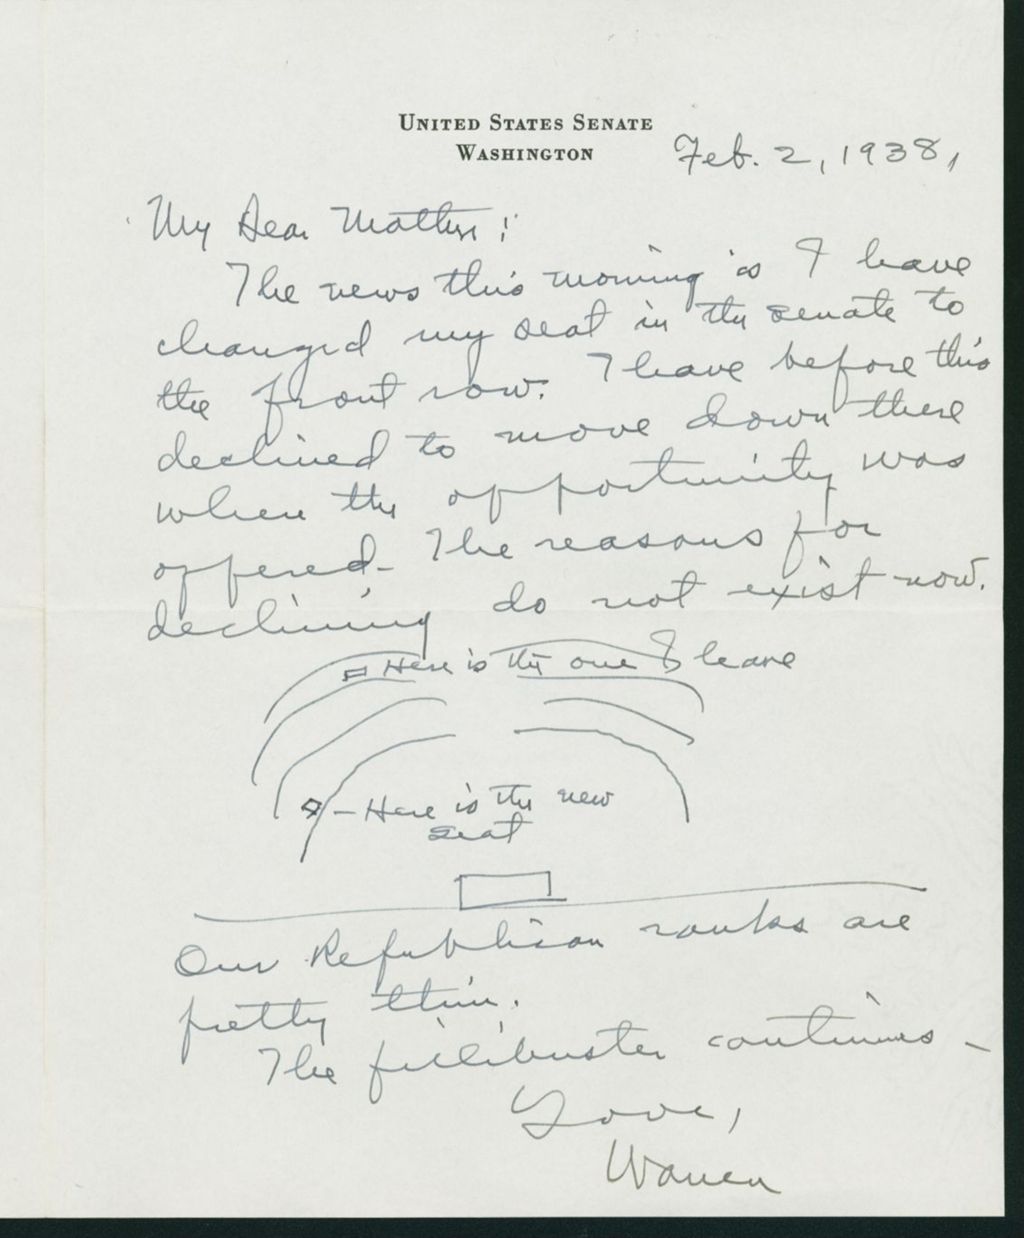 UNITED STATES SENATE
WASHINGTON
Feb. 2, 1938,
My Dear Mother:
The news this morning is I have
changed my seat in the senate to
the front row. I have before this
declined to move down there
when the opportunity was
offered. The reasons for
declining do not exist now.
Here is the one I leave
- Here is the new
seat
Our Republican ranks are
pretty thin.
The filibuster continues -
Love,
Warren